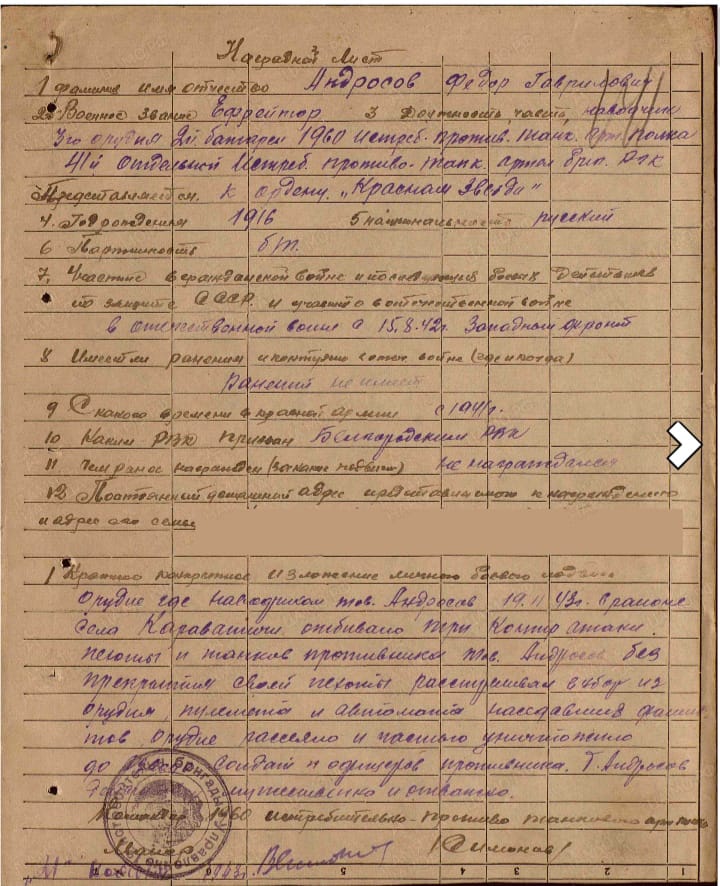 Наградной Лист
1 фамилия имя отчество Андросов Федор Гаврилович
2. Военное звание Ефрейтор 3 Должность часть наводчик
3го орудия 2й батареи 1960 истреб. против. танк. арт. полка
41й отдельной Истреб. противо-танк. артил бриг. РГК
Представляется к ордену „Красная Звезда"
4. Год рождения 1916 5 национальность русский
6 Партийность б/п.
7. Участие в гражданской войне и последующих боевых действиях
по защите СССР. и участие в отечественной войне
в отечественной войне с 15.8.42г. Западном фронт
8 Имеет ли ранения и контузию в отеч войне (где и когда)
Ранений не имеет
9 С какого времени в красной армии с 1941г.
10 Каким РВК призван Белгородским РВК
11 Чем ранее награжден (за какие подвиги) не награждался
12 Постоянный домашний адрес представляемого к награждению
и адрес его семьи
1 Краткое конкретное изложение личного боевого подвига
Орудие где наводчиком тов. Андросов 19.11 43г. в районе
села Караватичи отбивало три Контр атаки
пехоты и танков противника тов. Андросов без
прекрытия своей пехоты расстреливал в упор из
орудия, пулемета и автомата наседавших фашис
тов, орудие рассеяло и частью уничтожено
до солдат и офицеров противника. Т. Андросов
мужественно и отважно.
Командир 1960 истребительно-противо танкового арт полка
Майор /Симонов/
1943г.
7 6 5 4 3 2 1